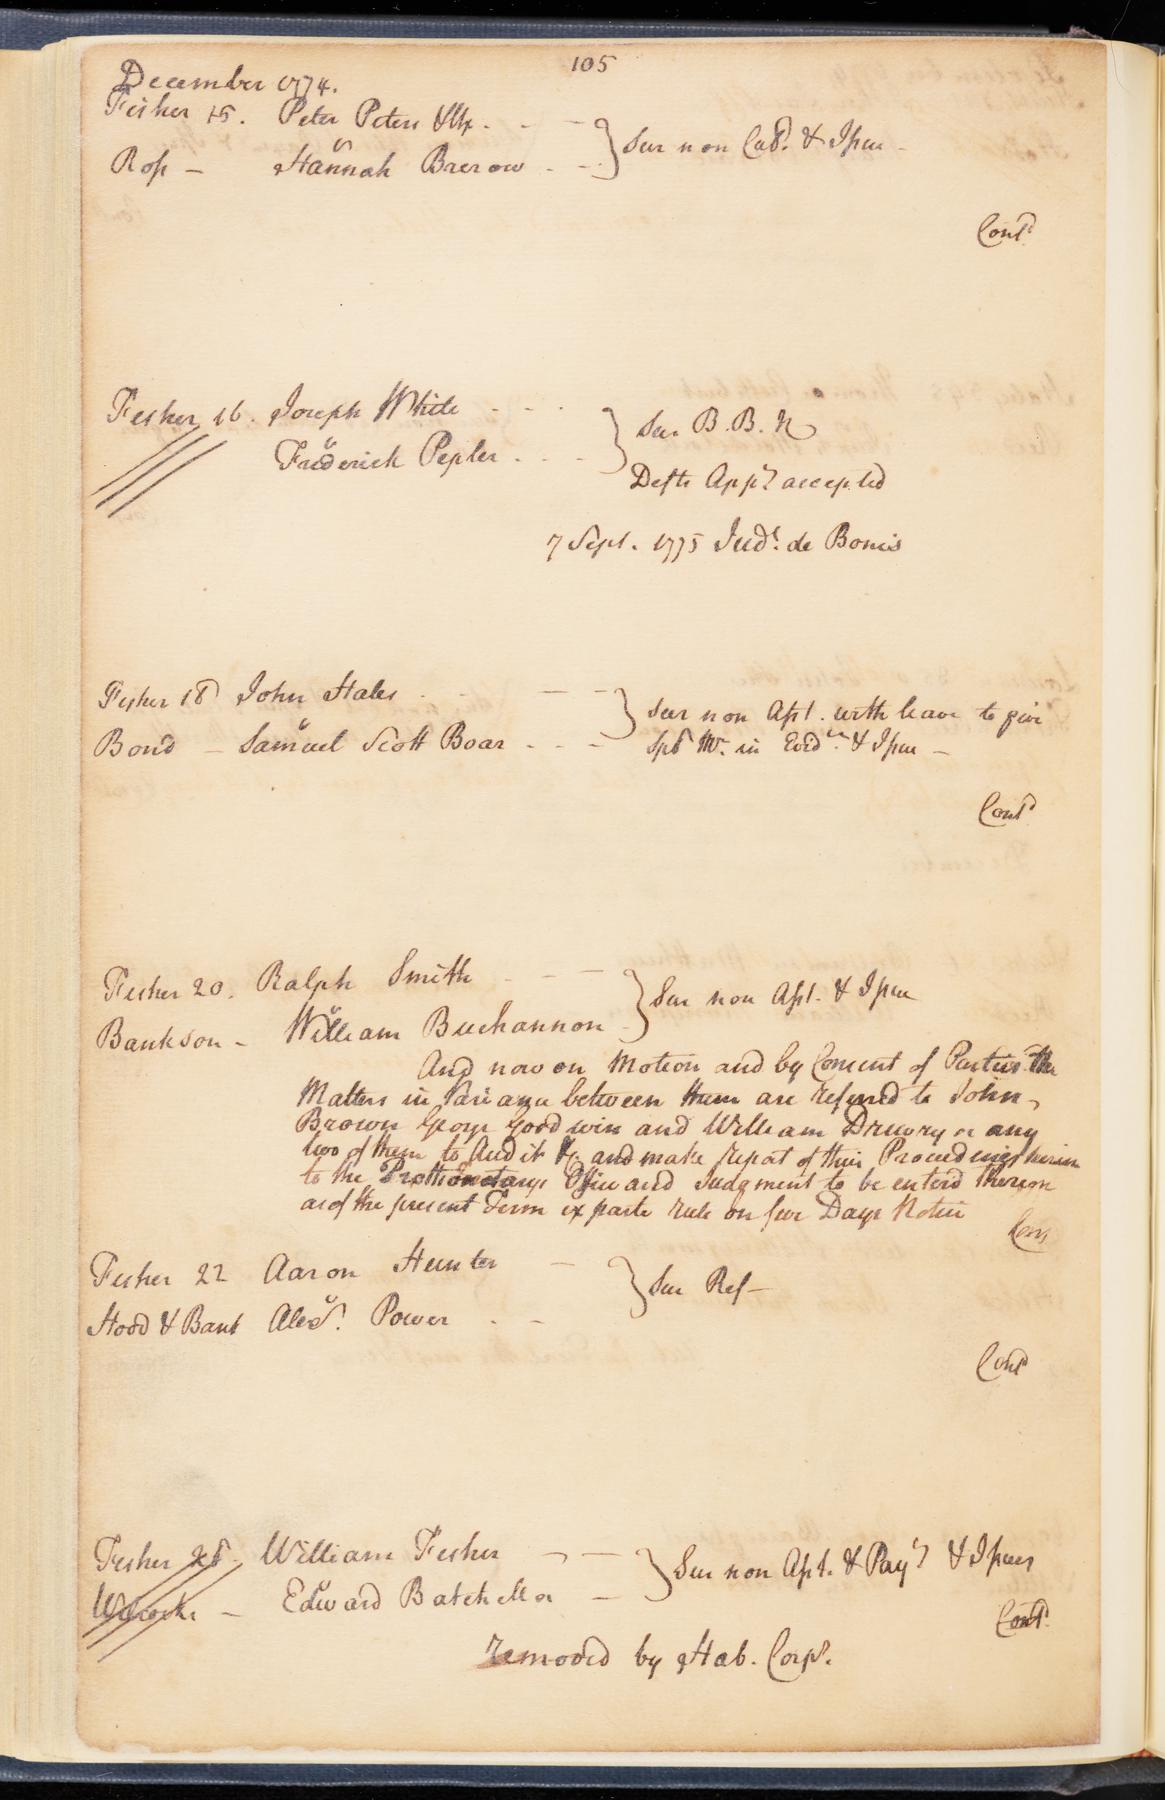 105
December 1774.
Fisher 15. Peter Peters & Ux. - - } Sur non Cul. & Issue -
v
Ross - Hannah Brerow - - 
Cont'd
Fisher 16. Joseph White - - - } Sur B. B. N
v
Frederick Pepler - - -
Defts App^r accepted
7 Sept. 1775 Jud^t. de Bonis
Fisher 18 John Hales - - - } Sur non Ass^t. with leave to give
v
Bond - Samuel Scott Boar - - - Spl Mr. in Evid^ce & Issue -
Cont'd
Fisher 20. Ralph Smith - - } Sur non Asst. & Issue
v
Bankson - William Buchannon
And now on Motion and by Consent of Parties the
Matters in Variance between them are referred to John
Brown George Goodwin and William Drewry or any
two of them to Audit &c and make report of their Proceedings herein
to the Prothonotarys Office and Judgment to be enterd thereon
as of the present Term ex parte rule on five Days Notice
Cont
Fisher 22 Aaron Hunter - } Sur Ref -
v
Hood & Bank Alex^r. Power - -
Cont'd
Fisher 28. William Fisher - - } Sur non Asst. & Pay^t & Issues
v
Wilcocks - Edward Batchellor -
Cont'd
removed by Hab. Corp^s.